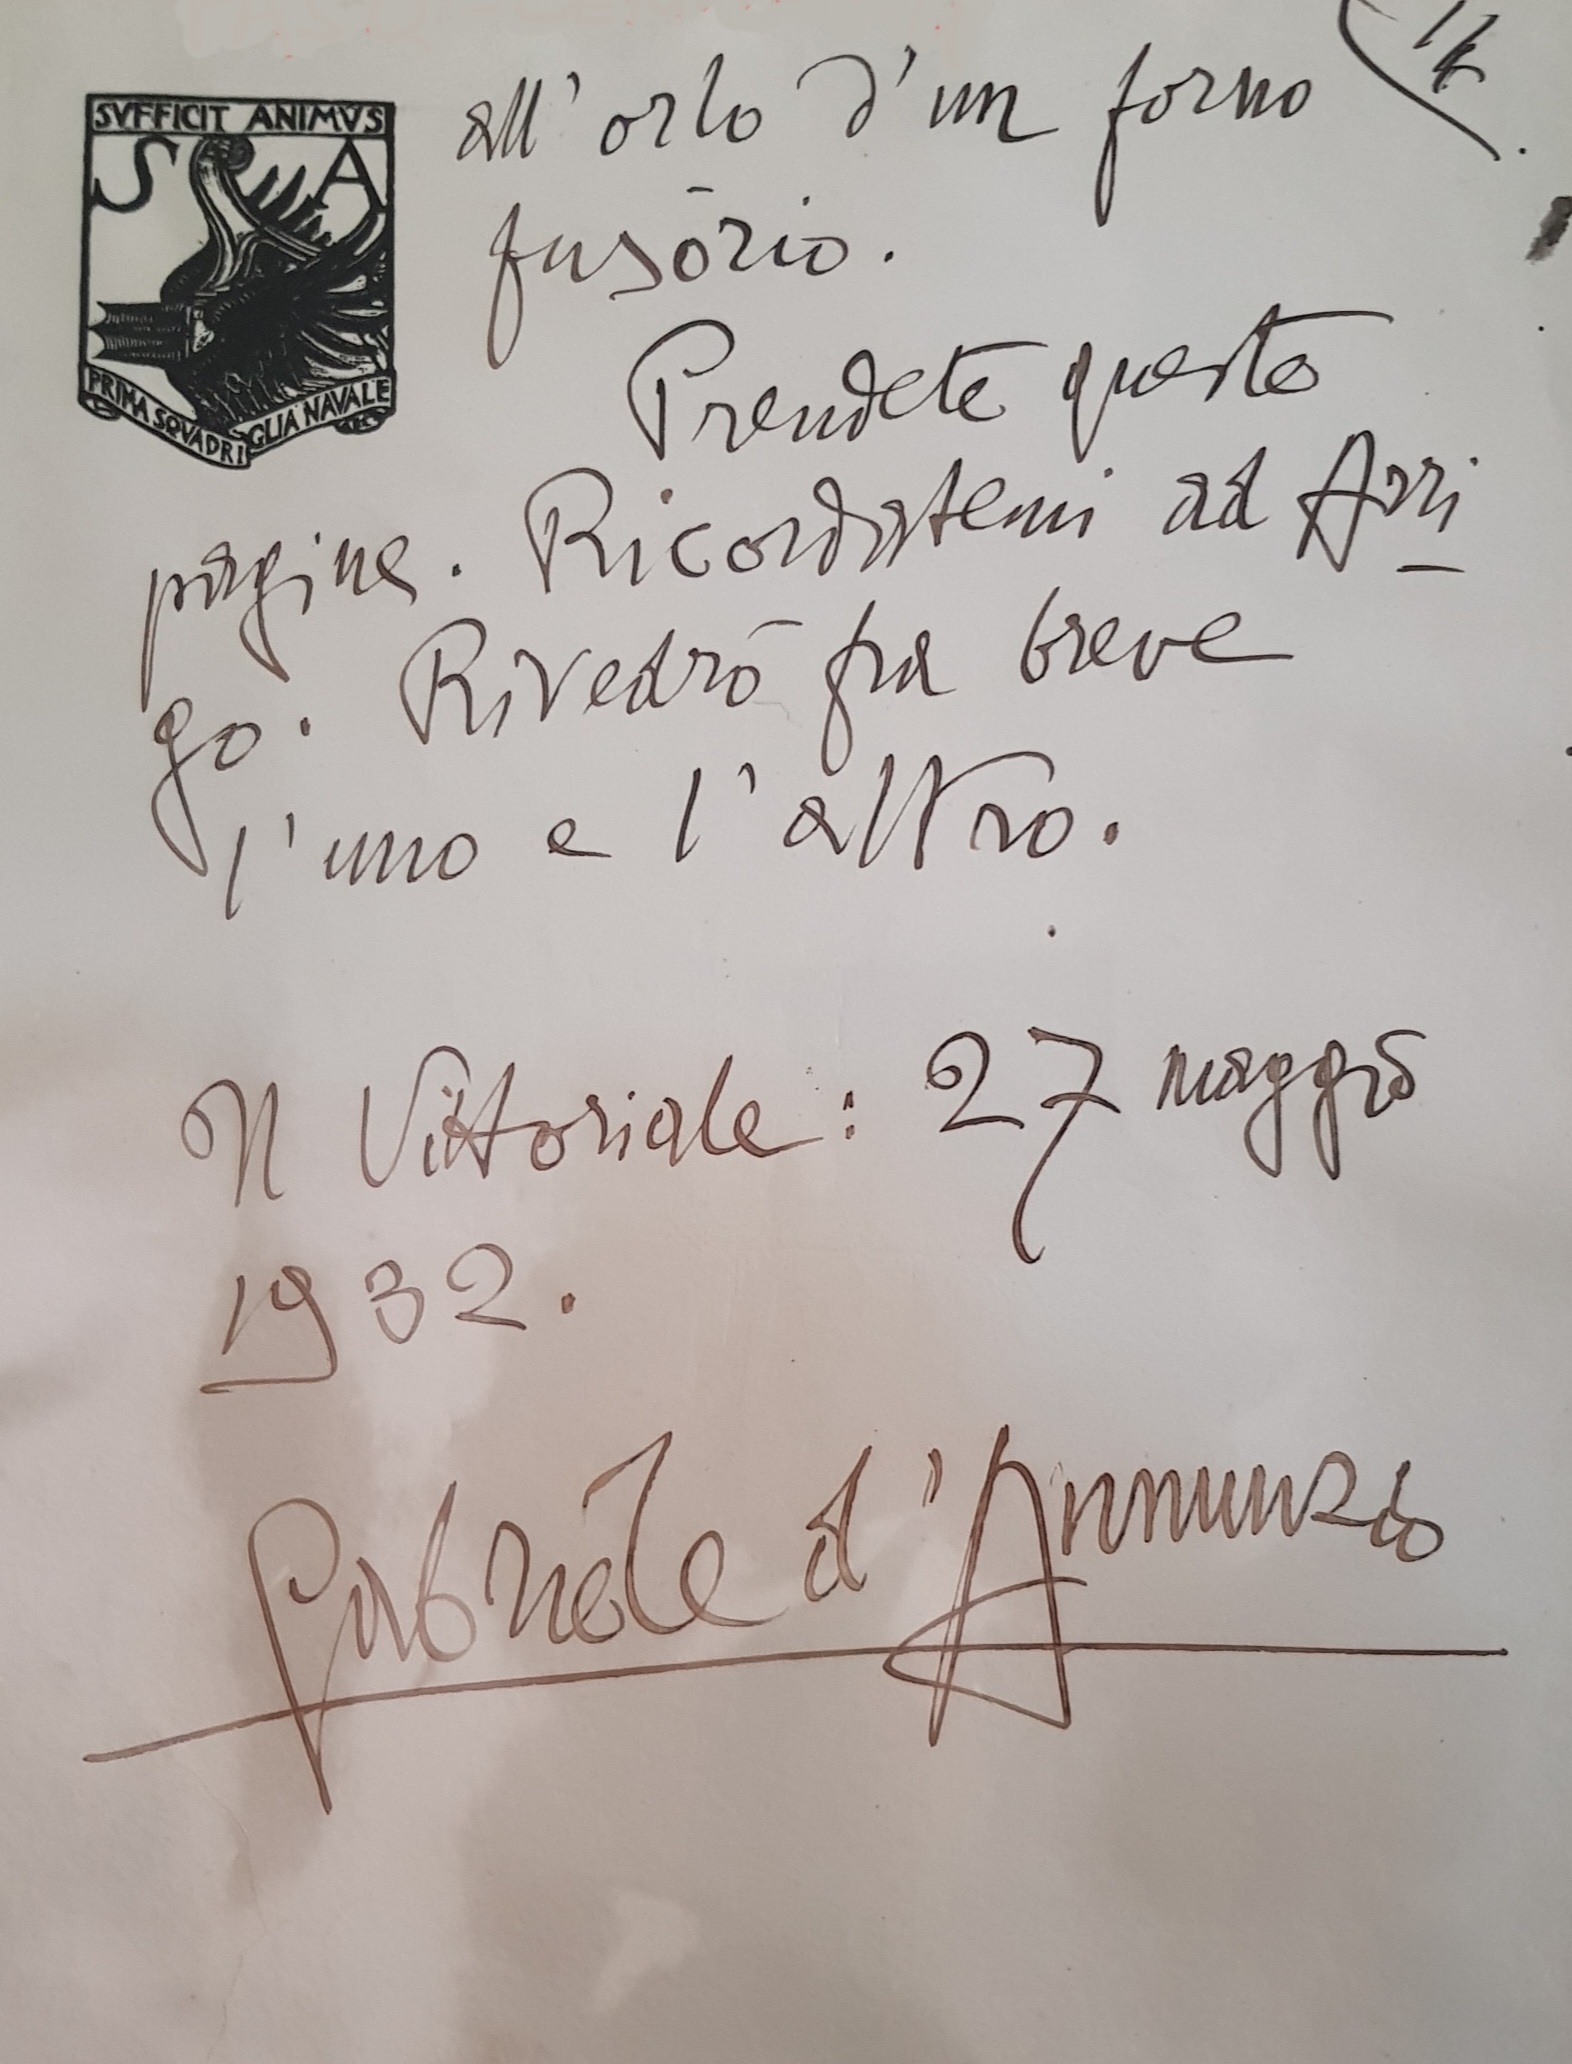 SVFFICIT ANIMVS
S A
PRIMA SQVADRIGLIA NAVALE
all'orlo d'un forno
fusōrio.
Prendete queste
pagine. Ricordatemi ad Arri
go. Rivedrò fra breve
l'uno e l'altro.
Il Vittoriale: 27 maggio
1932.
Gabriele d'Annunzio